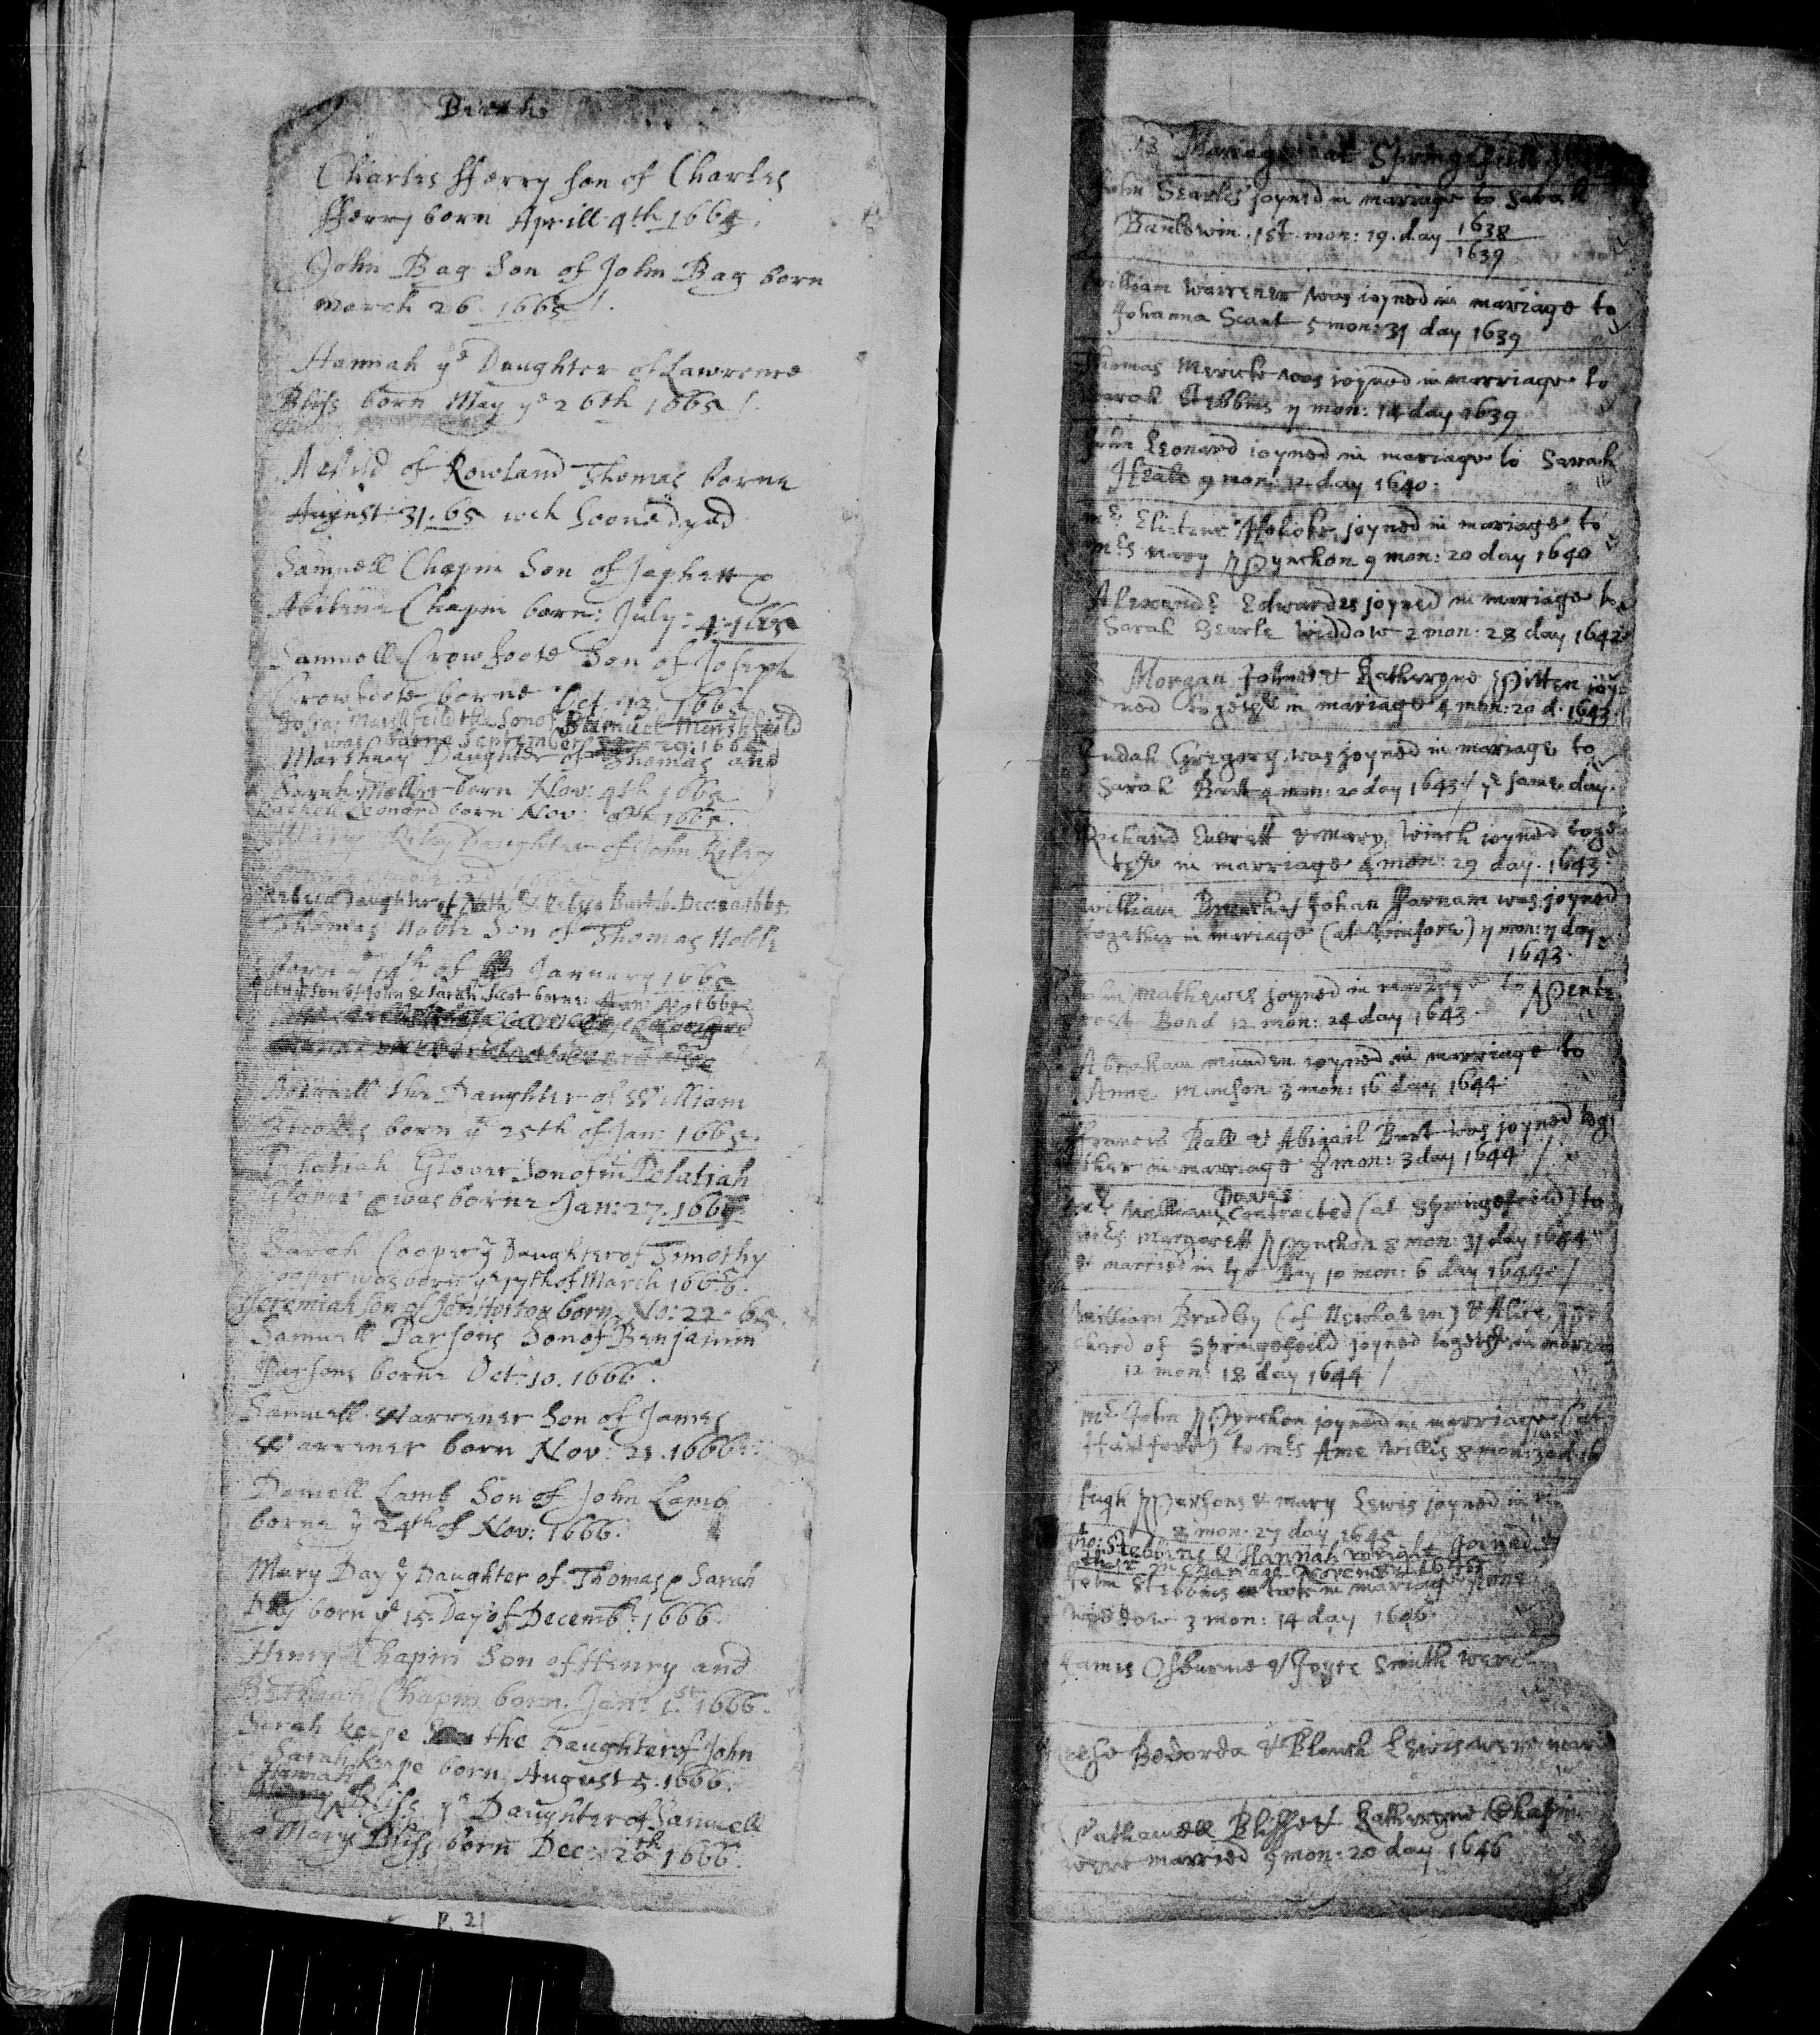 Births
Charles fferry son of Charles
fferry born Aprill 4th 1664
John Bag Son of John Bag born
March 26 1665
Hannah ye Daughter of Lawrence
Bliss born May ye 26th 1665
A Child of Rowland Thomas borne
August: 31. 65 wch soone dyed
Samuell Chapin Son of Japhett &
Abilene Chapin born: July: 4: 1665
Samuell Crowfoote Son of Joseph
Crowfoote borne Oct: 13: 1665
Marshfeild the Son of Samuel Marshfeild
was borne September 29. 1665
Daughter of Thomas and
Sarah Miller born Nov: 9th 1665
Rachell Leonard born Nov: 8th 1665.
Mary Riley Daughter of John Riley
Rebecca Daughter of Nath: & Rebecca Burt b. Decem 1665.
Thomas Noble Son of Thomas Noble
born ye 14th of January 1665
John Son of John & Sarah Scot borne: Jan: 1665
the Daughter of William
Brookes born ye 25th of Jan: 1665.
Pelatiah Glover Son of mr Pelatiah
Glover was borne Jan: 27. 1665
Sarah Cooper ye Daughter of Timothy
Cooper was born ye 17th of March 1665/6.
Jeremiah son of Jon Horton borne No: 22 - 65.
Samuell Parsons Son of Benjamin
Parsons borne Oct: 10. 1666.
Samuell Warrener Son of James
Warrener born Nov: 21. 1666.
Daniell Lamb Son of John Lamb
borne ye 24th of Nov: 1666.
Mary Day ye Daughter of Thomas & Sarah
Day born ye 15 Day of Decembr: 1666.
Henry Chapin Son of Henry and
Bethiah Chapin born Jan: 1st 1666.
Sarah Keepe the Daughter of John
Sarah Keepe born August 5. 1666.
Hannah
Bliss ye Daughter of Samuell
& Mary Bliss born Dec: 20th 1666.
p. 21
13 Mariages at Springfeild
John Searles joyned in marriage to Sarah
Bauldwin. 1st. mon: 19. day 1638
1639
William Warrener was joyned in mariage to
Johanna Scant 5 mon: 31 day 1639
Thomas Mericke was joyned in marriage to
Sarah Stebbins 7 mon: 14 day 1639
John Leonard joyned in mariage to Sarah
Heald 9 mon: 12 day 1640.
mr Elitzur Holioke joyned in mariage to
mrs Mary Pynchon 9 mon: 20 day 1640
Alexandr Edwardes joyned in mariage to
Sarah Searle widdow 2 mon: 28 day 1642
Morgan Johnes & Katheryne Pitten joy=
ned togethr in mariage 4 mon: 20 d. 1643
Judah Gregory was joyned in mariage to
Sarah Burt 4 mon: 20 day 1643 // ye same day
Richard Everett & Mary Winch joyned toge
thr in marriage 4 mon: 29 day. 1643
William Branch & Johan ffarnam was joyned
together in mariage (at Winsore) 7 mon: 7 day
1643.
John Mathewes joyned in mariage to Pente
cost Bond 12 mon: 24 day 1643
Abraham Munden joyned in marriage to
Anne Munson 3 mon: 16 day 1644
ffrancis Ball & Abigail Burt was joyned tog
ether in marriage 8 mon: 3 day 1644 /
Davis
mr William Contracted (at Springfeild) to
mrs Margarett Pynchon 8 mon: 31 day 1644
& married in the Bay 10 mon: 6 day 1644 /
William Bradley (of Newhaven) & Alice Pri
chard of Springfeild joyned togethr in mariag
12 mon: 18 day 1644 /
mr John Pynchon joyned in marriage (at
Hartford) to mrs Ame Willis 8 mon: 30 d. 16
Hugh Parsons & Mary Lewis joyned in
8 mon: 27 day 1645
Tho: Stebbins & Hannah Wright Joined
in Mariage November 1645
John Stebbins in mariage
widdow 3 mon: 14 day 1646.
James Osburne & Joyce Smith were
Reise Bedorda & Blanch Lewis were mari
Nathaniell Blisse & Katheryne Chapin
were married 9 mon: 20 day 1646